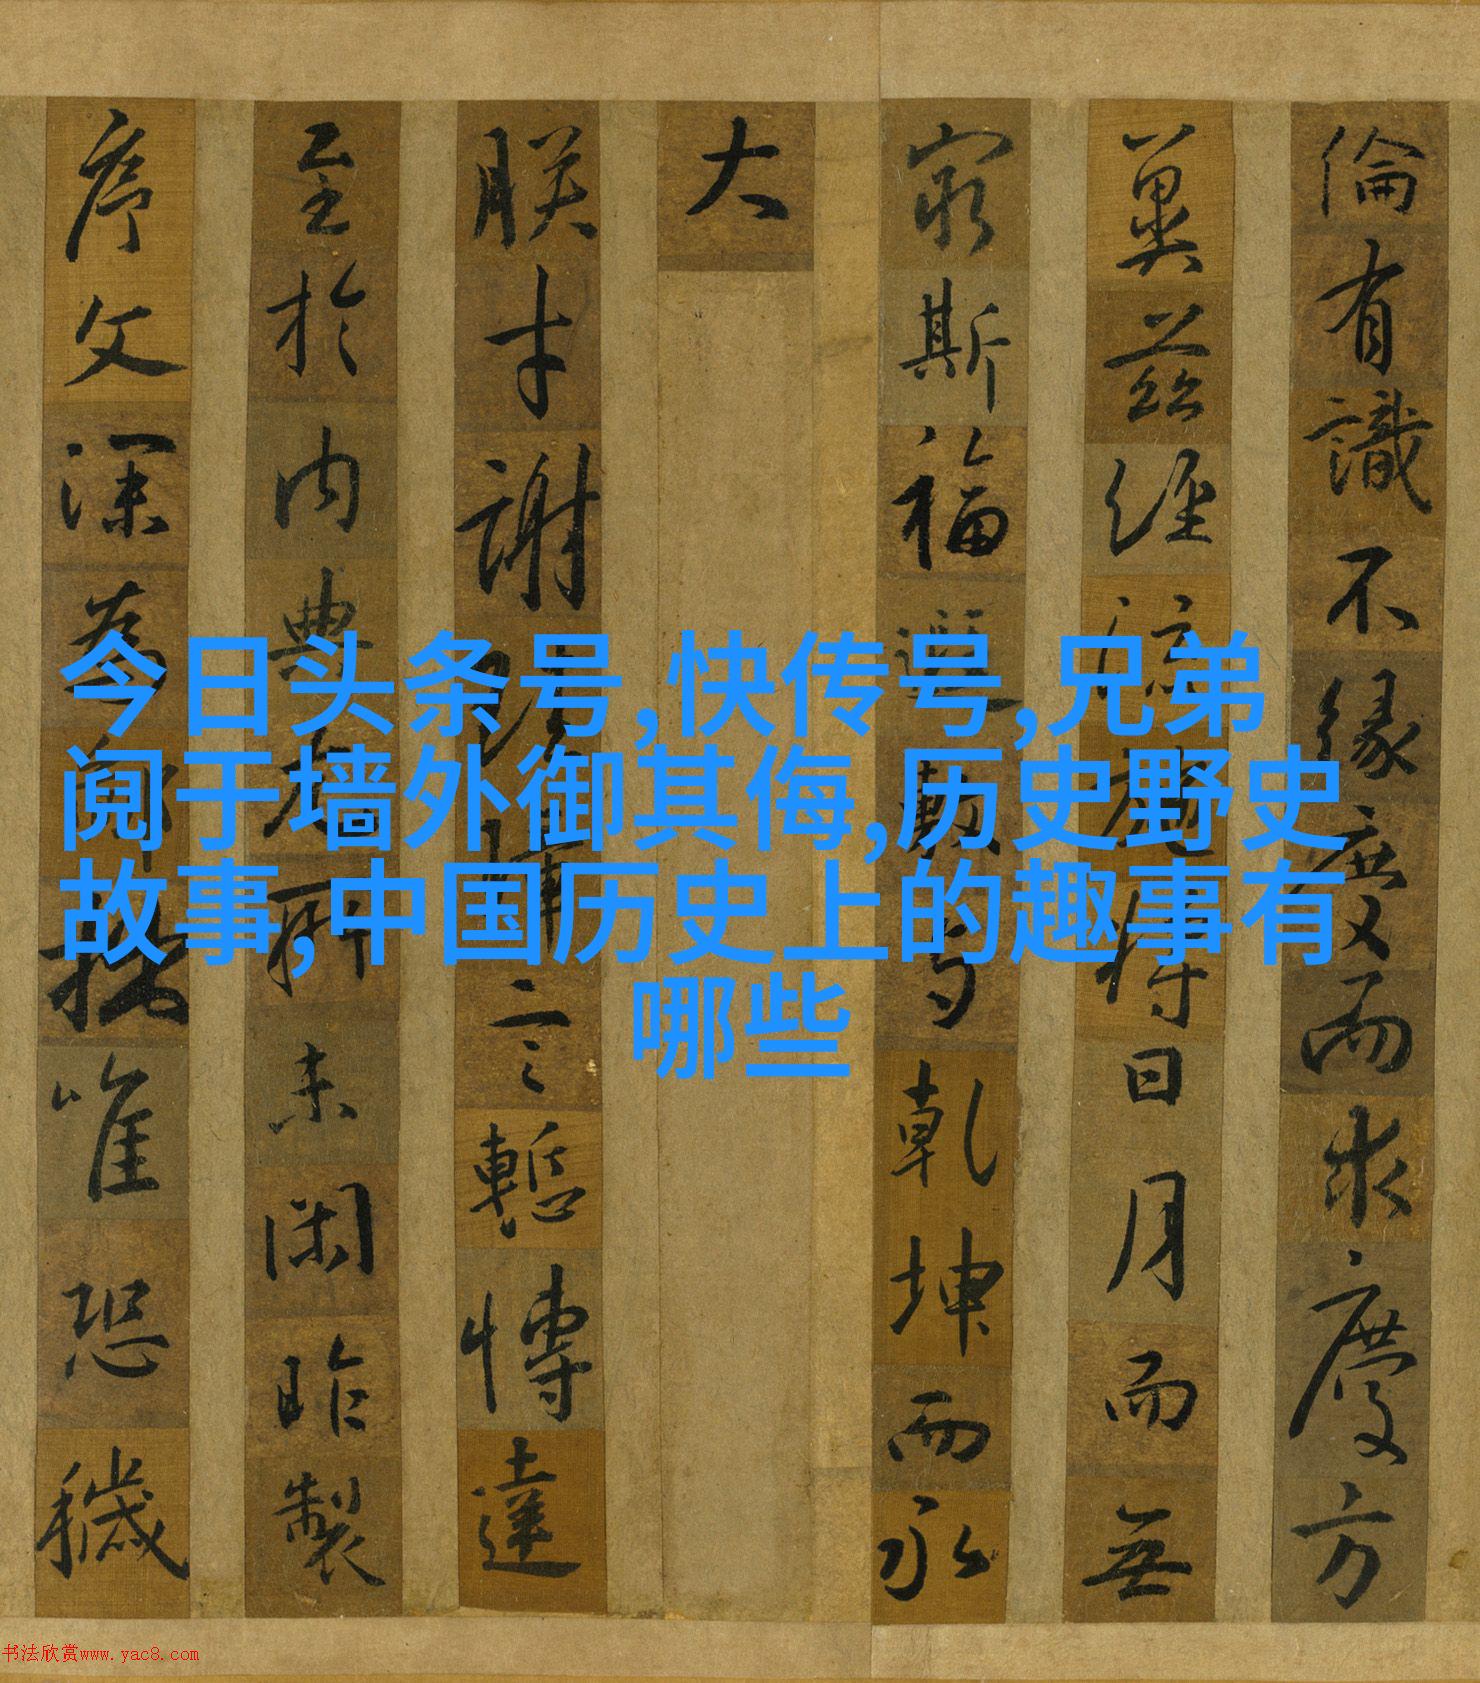 今日头条号,快传号,兄弟
阋于墙外御其侮,历史野史
故事,中国历史上的趣事有
哪些
倫有識不緣慶而求慶方
冀茲經流施将日月而無
窮斯福遐敷与乾坤而永
大
朕才謝珪璋言慙博達
至於内典尤所未閑昨製
序文深為鄙拙唯恐穢
书法欣赏www.yac8.com